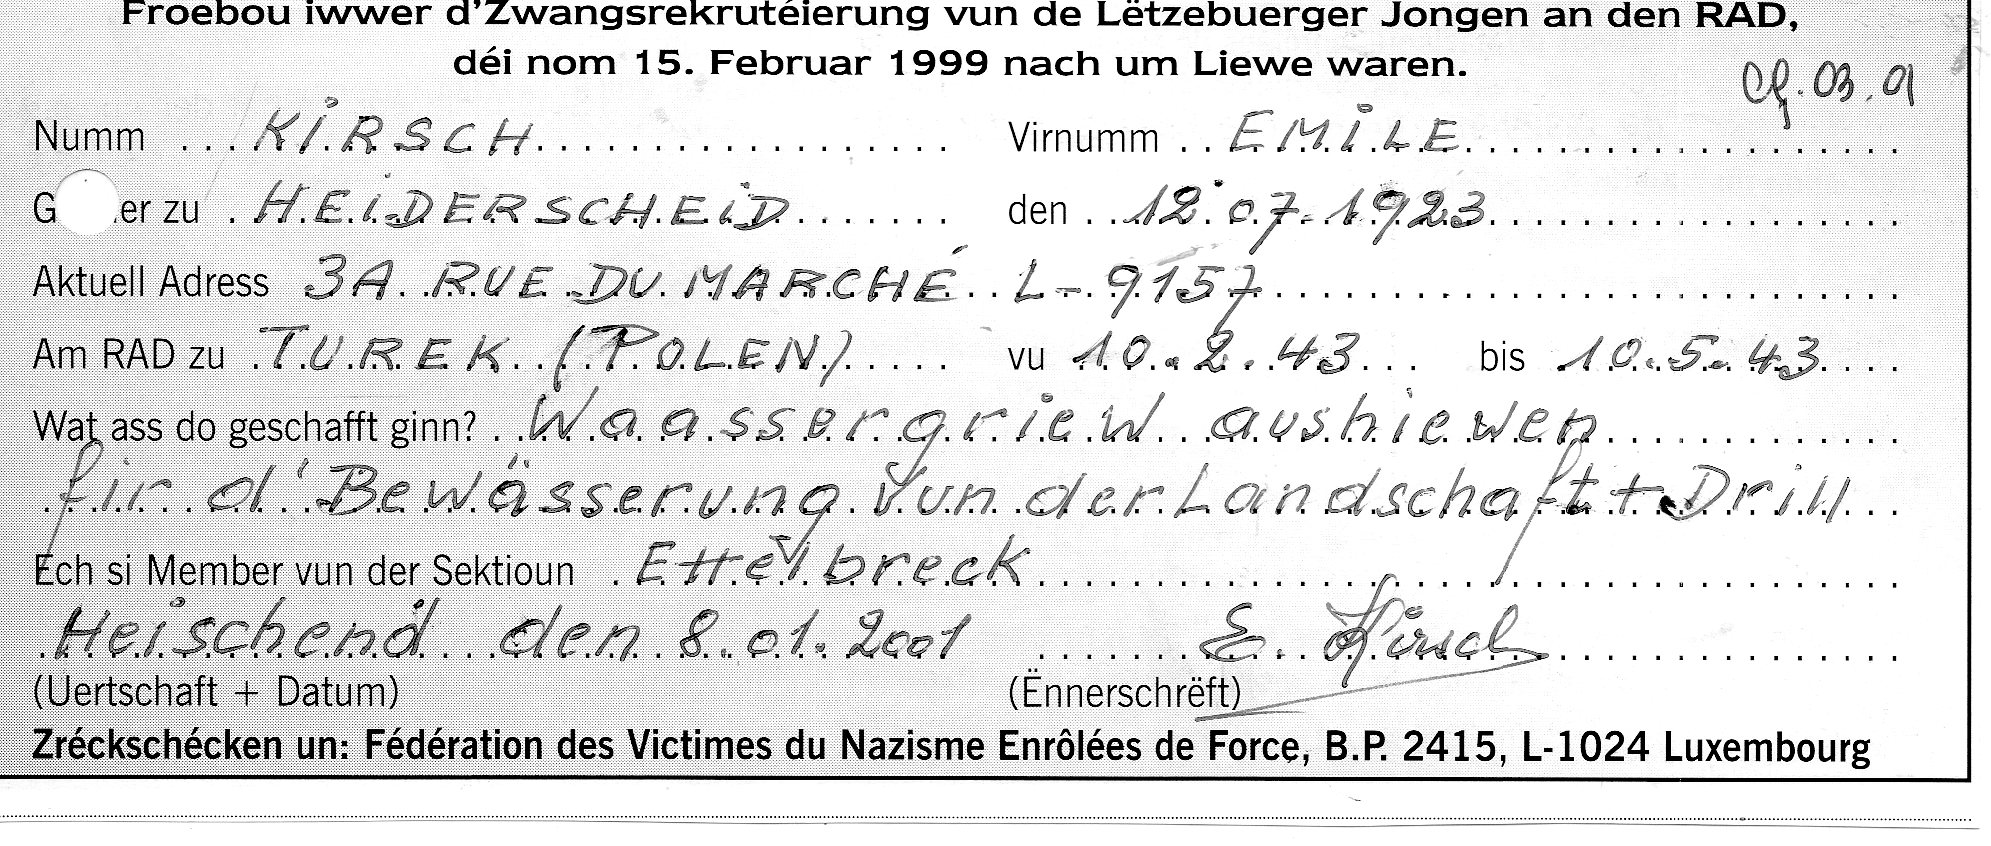 Froebou iwwer d'Zwangsrekrutéierung vun de Lëtzebuerger Jongen an den RAD,
déi nom 15. Februar 1999 nach um Liewe waren.
03.01
Numm KIRSCH Virnumm EMILE
G er zu HEIDERSCHEID den 12.07.1923
Aktuell Adress 3A RUE DU MARCHÉ L-9157
Am RAD zu TUREK (POLEN) vu 10.2.43 bis 10.5.43
Wat ass do geschafft ginn? Waassergriew aushiewen
fir d'Bewässerung vun der Landschaft + Drill
Ech si Member vun der Sektioun Ettelbreck
Heischend den 8.01.2001 E. Kirsch
(Uertschaft + Datum) (Ënnerschrëft)
Zréckschécken un: Fédération des Victimes du Nazisme Enrôlées de Force, B.P. 2415, L-1024 Luxembourg